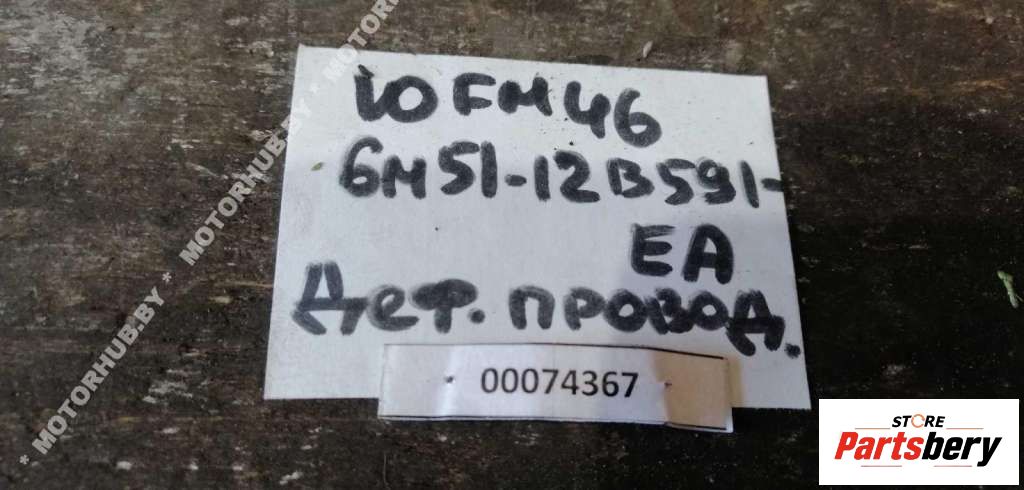 10FM46
6M51-12B591-
EA
Деф. ПРОВОД.
00074367
* MOTORHUB.BY * MOTORHUB.BY * MOTORHUB.BY
STORE
Partsbery